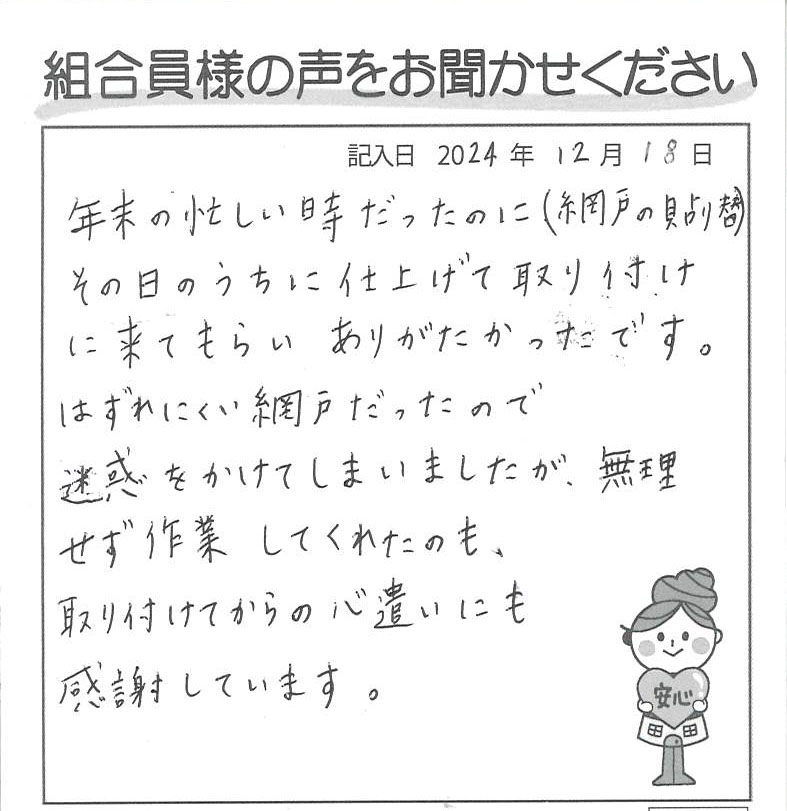 組合員様の声をお聞かせください
記入日 2024 年 12 月 18 日
年末の忙しい時だったのに(網戸の貼り替)
その日のうちに仕上げて取り付け
に来てもらい ありがたかったです。
はずれにくい網戸だったので
迷惑をかけてしまいましたが、無理
せず作業してくれたのも、
取り付けてからの心遣いにも
感謝しています。
安心